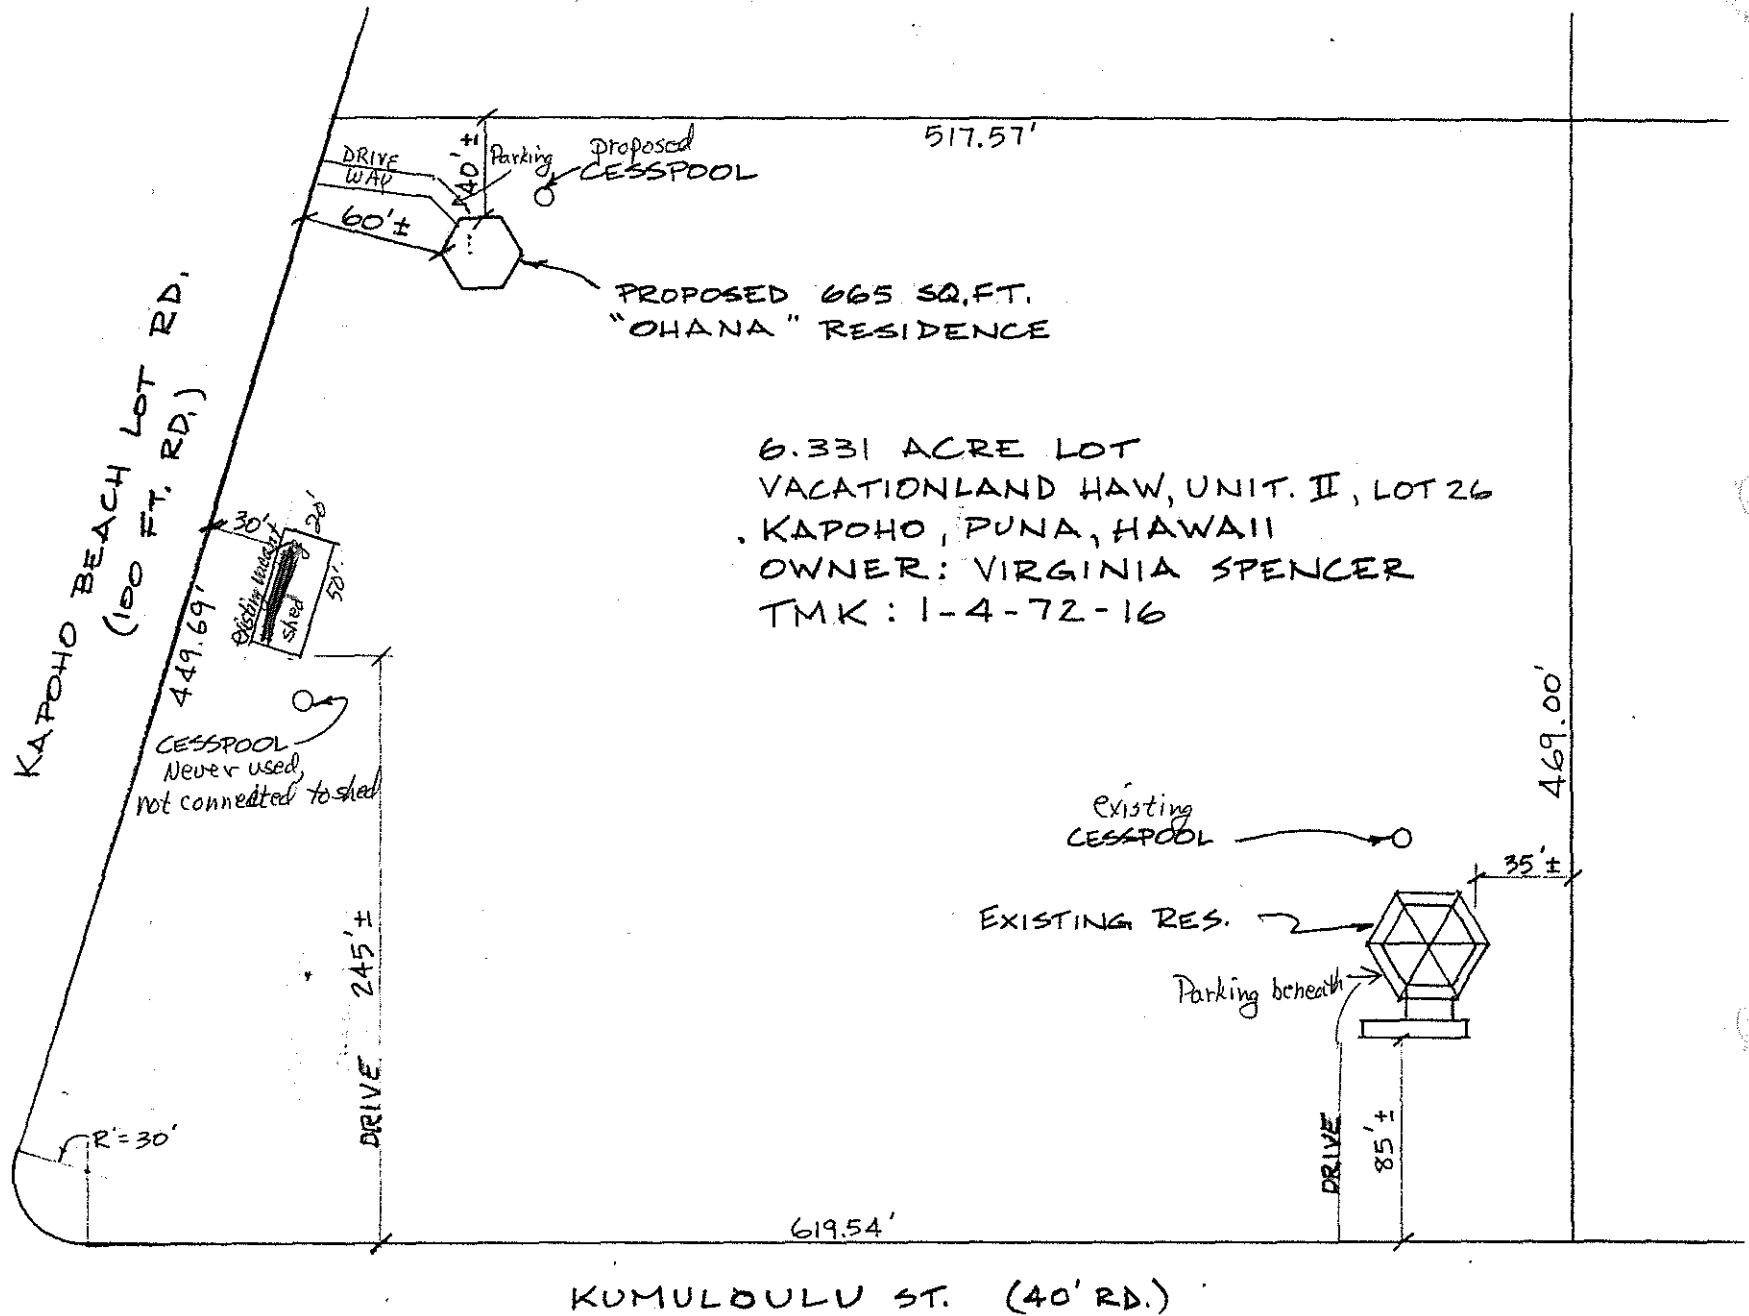 517.57'
DRIVE
WAY
40'±
Parking
proposed
CESSPOOL
60'±
PROPOSED 665 SQ.FT.
"OHANA" RESIDENCE
KAPOHO BEACH LOT RD.
(100 FT. RD.)
449.69'
30'
20'
50'
existing vacant
shed
6.331 ACRE LOT
VACATIONLAND HAW, UNIT. II, LOT 26
KAPOHO, PUNA, HAWAII
OWNER: VIRGINIA SPENCER
TMK: 1-4-72-16
CESSPOOL
Never used,
not connected to shed
469.00'
existing
CESSPOOL
35'±
EXISTING RES.
Parking beneath
DRIVE 245'±
DRIVE
85'±
R=30'
619.54'
KUMULOULU ST. (40' RD.)